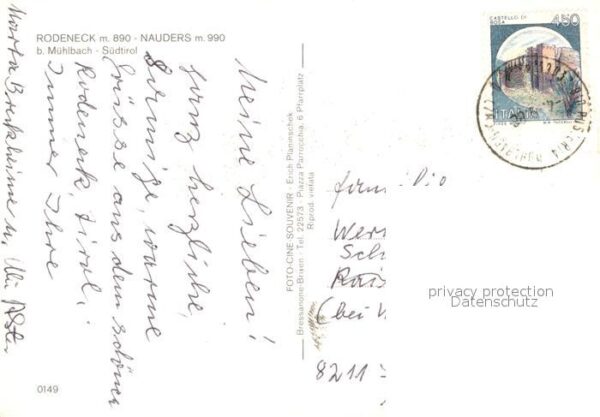 RODENECK m. 890 - NAUDERS m. 990
b. Mühlbach - Südtirol
Meine Lieben!
Ganz herzliche,
sonnige, warme
Grüsse aus dem schönen
Rodeneck, Tirol,
Immer Ihre
Marta u. Uli
FOTO-CINE SOUVENIR - Erich Planinschek
Bressanone-Brixen - Tel. 22573 - Piazza Parrocchia, 6 Pfarrplatz
Riprod. vietata
CASTELLO DI
ROCCA
450
ITALIA
Wer
Sch
Rais
(bei W
8211
privacy protection
Datenschutz
0149